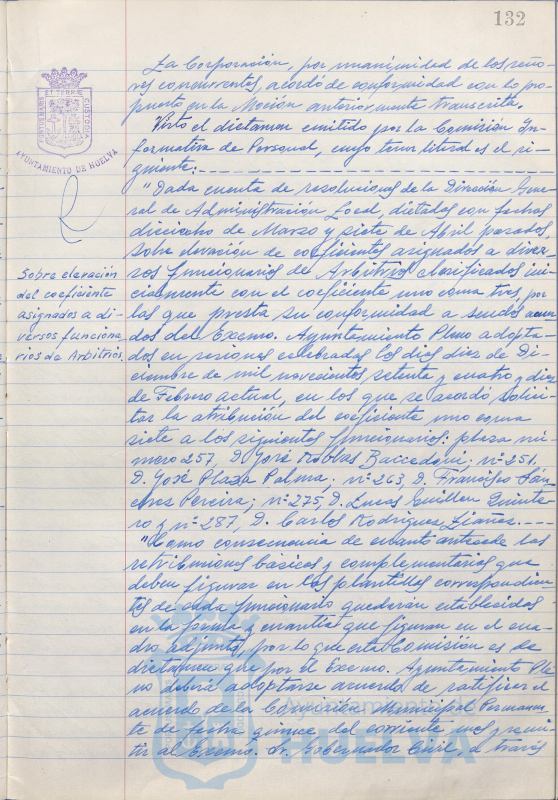 132
PORTUS MARIS
ET TERRÆ
CUSTODIA
AYUNTAMIENTO DE HUELVA
La Corporación, por unanimidad de los seño-
res concurrentes, acordó de conformidad con lo pro-
puesto en la Moción anteriormente transcrita.
Visto el dictamen emitido por la Comisión In-
formativa de Personal, cuyo tenor literal es el si-
guiente:
"Dada cuenta de resoluciones de la Dirección Gene-
ral de Administración Local, dictadas con fechas
dieciocho de Marzo y siete de Abril pasados
sobre elevación de coeficientes asignados a diver-
sos funcionarios de Arbitrios clasificados ini-
cialmente con el coeficiente uno coma tres, por
las que presta su conformidad a sendos acuer-
dos del Excmo. Ayuntamiento Pleno adopta-
dos en sesiones celebradas los días diez de Di-
ciembre de mil novecientos setenta y cuatro y diez
de Febrero actual, en los que se acordó solici-
tar la atribución del coeficiente uno coma
siete a los siguientes funcionarios: plaza nú-
mero 257, D. José Robles nº 251,
D. José Plaza Palma; nº 263, D. Francisco Sán-
chez Pereira; nº 275, D. Lucas Guillen Quinte-
ro y nº 287, D. Carlos Rodríguez Liañez.
"Como consecuencia de cuanto antecede las
retribuciones básicas y complementarias que
deben figurar en las plantillas correspondien-
tes de cada funcionario quedarán establecidas
en la forma y cuantía que figuran en el cua-
dro adjunto, por lo que esta Comisión es de
dictamen que por el Excmo. Ayuntamiento Ple-
no deberá adoptarse acuerdo de ratificar el
acuerdo de la Comisión Municipal Permanen-
te de fecha quince del corriente mes y remi-
tir al Excmo. Sr. Gobernador Civil, a través
Sobre elevación
del coeficiente
asignados a di-
versos funciona-
rios de Arbitrios.
Ayuntamiento
HUELVA